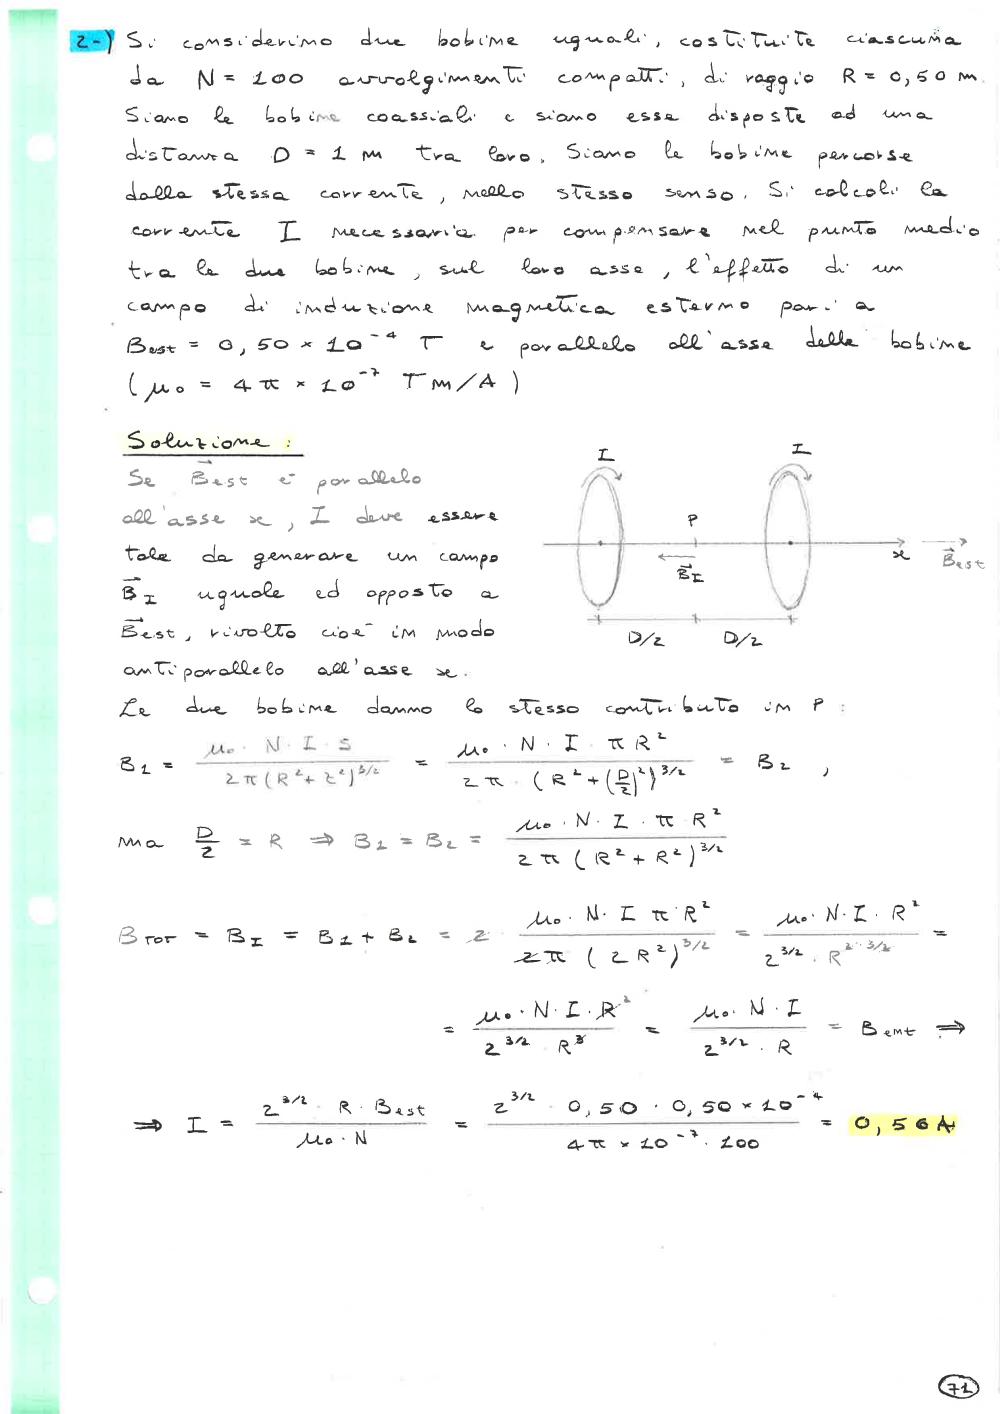 2-) Si considerino due bobine uguali, costituite ciascuna
da N = 100 avvolgimenti compatti, di raggio R = 0,50 m.
Siano le bobine coassiali e siano esse disposte ad una
distanza D = 1 m tra loro. Siano le bobine percorse
dalla stessa corrente, nello stesso senso. Si calcoli la
corrente I necessaria per compensare nel punto medio
tra le due bobine, sul loro asse, l'effetto di un
campo di induzione magnetica esterno pari a
Best = 0,50 × 10⁻⁴ T e parallelo all'asse delle bobine
(μ₀ = 4π × 10⁻⁷ T m/A)
Soluzione:
Se B⃗est è parallelo
all'asse x, I deve essere
tale da generare un campo
B⃗I uguale ed opposto a
B⃗est, rivolto cioè in modo
antiparallelo all'asse x.
I I
P
B⃗I x B⃗est
D/2 D/2
Le due bobine danno lo stesso contributo in P:
B1 = μ₀ · N · I · S / 2π(R² + z²)^3/2 = μ₀ · N · I · πR² / 2π · (R² + (D/2)²)^3/2 = B2,
ma D/2 = R ⇒ B1 = B2 = μ₀ · N · I · π · R² / 2π (R² + R²)^3/2
BTOT = BI = B1 + B2 = 2 · μ₀ · N · I π R² / 2π (2R²)^3/2 = μ₀ · N · I · R² / 2^3/2 · R^2·3/2 =
= μ₀ · N · I · R² / 2^3/2 · R³ = μ₀ · N · I / 2^3/2 · R = Bemt ⇒
⇒ I = 2^3/2 · R · Best / μ₀ · N = 2^3/2 · 0,50 · 0,50 × 10⁻⁴ / 4π × 10⁻⁷ · 100 = 0,56 A
71